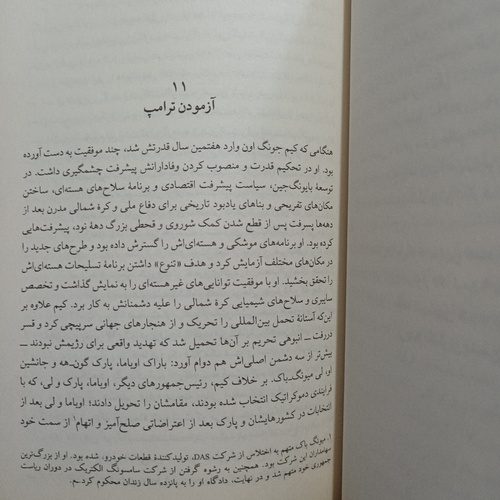 ۱۱
آزمودن ترامپ
هنگامی که کیم جونگ اون وارد هفتمین سال قدرتش شد، چند موفقیت به دست آورده
بود. او در تحکیم قدرت و منصوب کردن وفادارانش پیشرفت چشمگیری داشت. در
توسعهٔ بایونگ‌جین، سیاست پیشرفت اقتصادی و برنامهٔ سلاح‌های هسته‌ای، ساختن
مکان‌های تفریحی و بناهای یادبود تاریخی برای دفاع ملی و کرهٔ شمالی مدرن بعد از
دهه‌ها پسرفت پس از قطع شدن کمک شوروی و قحطی بزرگ دههٔ نود، پیشرفت‌هایی
کرده بود. او برنامه‌های موشکی و هسته‌ای‌اش را گسترش داده بود و طرح‌های جدید را
در مکان‌های مختلف آزمایش کرد و هدف «تنوع» داشتن برنامهٔ تسلیحات هسته‌ای‌اش
را تحقق بخشید. او با موفقیت توانایی‌های غیرهسته‌ای را به نمایش گذاشت و تخصص
سایبری و سلاح‌های شیمیایی کرهٔ شمالی را علیه دشمنانش به کار برد. کیم علاوه بر
این‌که آستانهٔ تحمل بین‌المللی را تحریک و از هنجارهای جهانی سرپیچی کرد و قسر
دررفت ــ انبوهی تحریم بر آن‌ها تحمیل شد که تهدید واقعی برای رژیمش نبودند ــ
بیش‌تر از سه دشمن اصلی‌اش هم دوام آورد: باراک اوباما، پارک گون‌هه و جانشین
او، لی میونگ‌باک. بر خلاف کیم، رئیس‌جمهورهای دیگر، اوباما، پارک و لی، که با
فرایندی دموکراتیک انتخاب شده بودند، مقامشان را تحویل دادند؛ اوباما و لی بعد از
انتخابات در کشورهایشان و پارک بعد از اعتراضاتی صلح‌آمیز و اتهام۱ از سمت خود
۱. میونگ باک متهم به اختلاس از شرکت DAS، تولیدکنندهٔ قطعات خودرو، شده بود. او از بزرگ‌ترین
سهامداران این شرکت بود. همچنین به رشوه گرفتن از شرکت سامسونگ الکتریک در دوران ریاست
جمهوری خود متهم شد و در نهایت، دادگاه او را به پانزده سال زندان محکوم کرد.ــم.